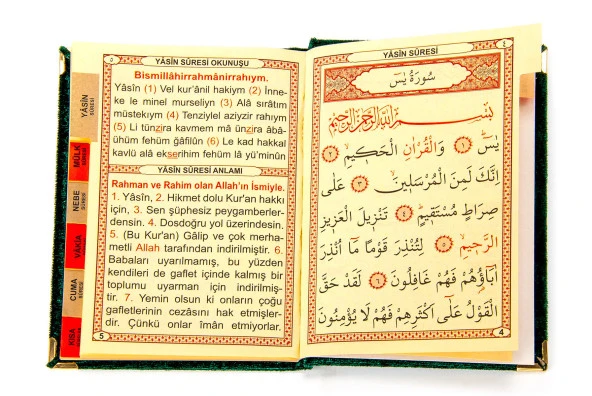 YÂSİN
SÛRESİ
MÜLK
NEBE
SÛRESİ
VÂKIA
CUMA
SÛRESİ
KISA
٥ YÂSİN SÛRESİ OKUNUŞU
Bismillâhirrahmânirrahıym.
Yâsîn (1) Vel kur'ânil hakiym (2) İnne-
ke le minel murseliyn (3) Alâ sıratım
müstekıym (4) Tenziylel aziyzir rahıym
(5) Li tünzira kavmem mâ ünzira âbâ-
ühüm fehüm gâfilûn (6) Le kad hakkal
kavlü alâ ekserihim fehüm lâ yü'minûn
YÂSİN SÛRESİ ANLAMI
Rahman ve Rahim olan Allah'ın İsmiyle.
1. Yâsîn, 2. Hikmet dolu Kur'an hakkı
için, 3. Sen şüphesiz peygamberler-
densin. 4. Dosdoğru yol üzerindesin.
5. (Bu Kur'an) Gâlip ve çok merha-
metli Allah tarafından indirilmiştir. 6.
Babaları uyarılmamış, bu yüzden
kendileri de gaflet içinde kalmış bir
toplumu uyarman için indirilmiş-
tir. 7. Yemin olsun ki onların çoğu
gafletlerinin cezasını hak etmişler-
dir. Çünkü onlar îmân etmiyorlar.
5
YÂSİN SÛRESİ ٤
سُورَةُ يٰسٓ
بِسْمِ اللّٰهِ الرَّحْمٰنِ الرَّحِيمِ
يٰسٓ ﴿١﴾ وَالْقُرْاٰنِ الْحَكِيمِ ﴿٢﴾
اِنَّكَ لَمِنَ الْمُرْسَلِينَ ﴿٣﴾ عَلٰى
صِرَاطٍ مُسْتَقِيمٍ ﴿٤﴾ تَنْزِيلَ الْعَزِيزِ
الرَّحِيمِ ﴿٥﴾ لِتُنْذِرَ قَوْمًا مَٓا اُنْذِرَ
اٰبَٓاؤُهُمْ فَهُمْ غَافِلُونَ ﴿٦﴾ لَقَدْ حَقَّ
الْقَوْلُ عَلٰٓى اَكْثَرِهِمْ فَهُمْ لَا يُؤْمِنُونَ
4